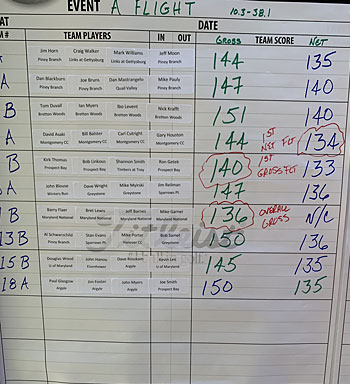 EVENT A FLIGHT 10.3-38.1
DATE
TEAM PLAYERS IN OUT GROSS TEAM SCORE NET
Jim Horn Craig Walker Mark Williams Jeff Moon 144 135
Piney Branch Links at Gettysburg Links at Gettysburg Piney Branch
A Dan Blackburn Joe Bruns Dan Mastrangelo Mike Pauly 147 140
Piney Branch Quail Valley Piney Branch
B Tom Duvall Ian Myers Bo Levent Nick Krafft 151 140
Bretton Woods Bretton Woods Bretton Woods Bretton Woods
A David Asaki Bill Balster Carl Cutright Gary Houston 144 1ST NET FLT 134
Montgomery CC Montgomery CC Montgomery CC Montgomery CC
B Kirk Thomas Bob Linkous Shannon Smith Ron Getek 140 1ST GROSS FLT 133
Prospect Bay Prospect Bay Timbers at Troy Prospect Bay
A John Bloyne Dave Wright Mike Mylnski Jim Reilman 147 136
Winters Run Greystone Greystone Sparrows Pt
B Barry Flaer Bret Lewis Jeff Burnes Mike Garner 136 OVERALL GROSS N/C
Maryland National Maryland National Maryland National Maryland National
13B Al Schwarzschild Stan Evans Mike Pyles Bob Samef 150 136
Piney Branch Hanover CC Greystone
15B Douglas Wood John Hanou Dave Rosskam Kevin Lim 145 135
U of Maryland Eisenhower Argyle U of Maryland
18A Paul Glasgow Jim Foster John Myers Joe Smith 150 135
Argyle Argyle Argyle Prospect Bay